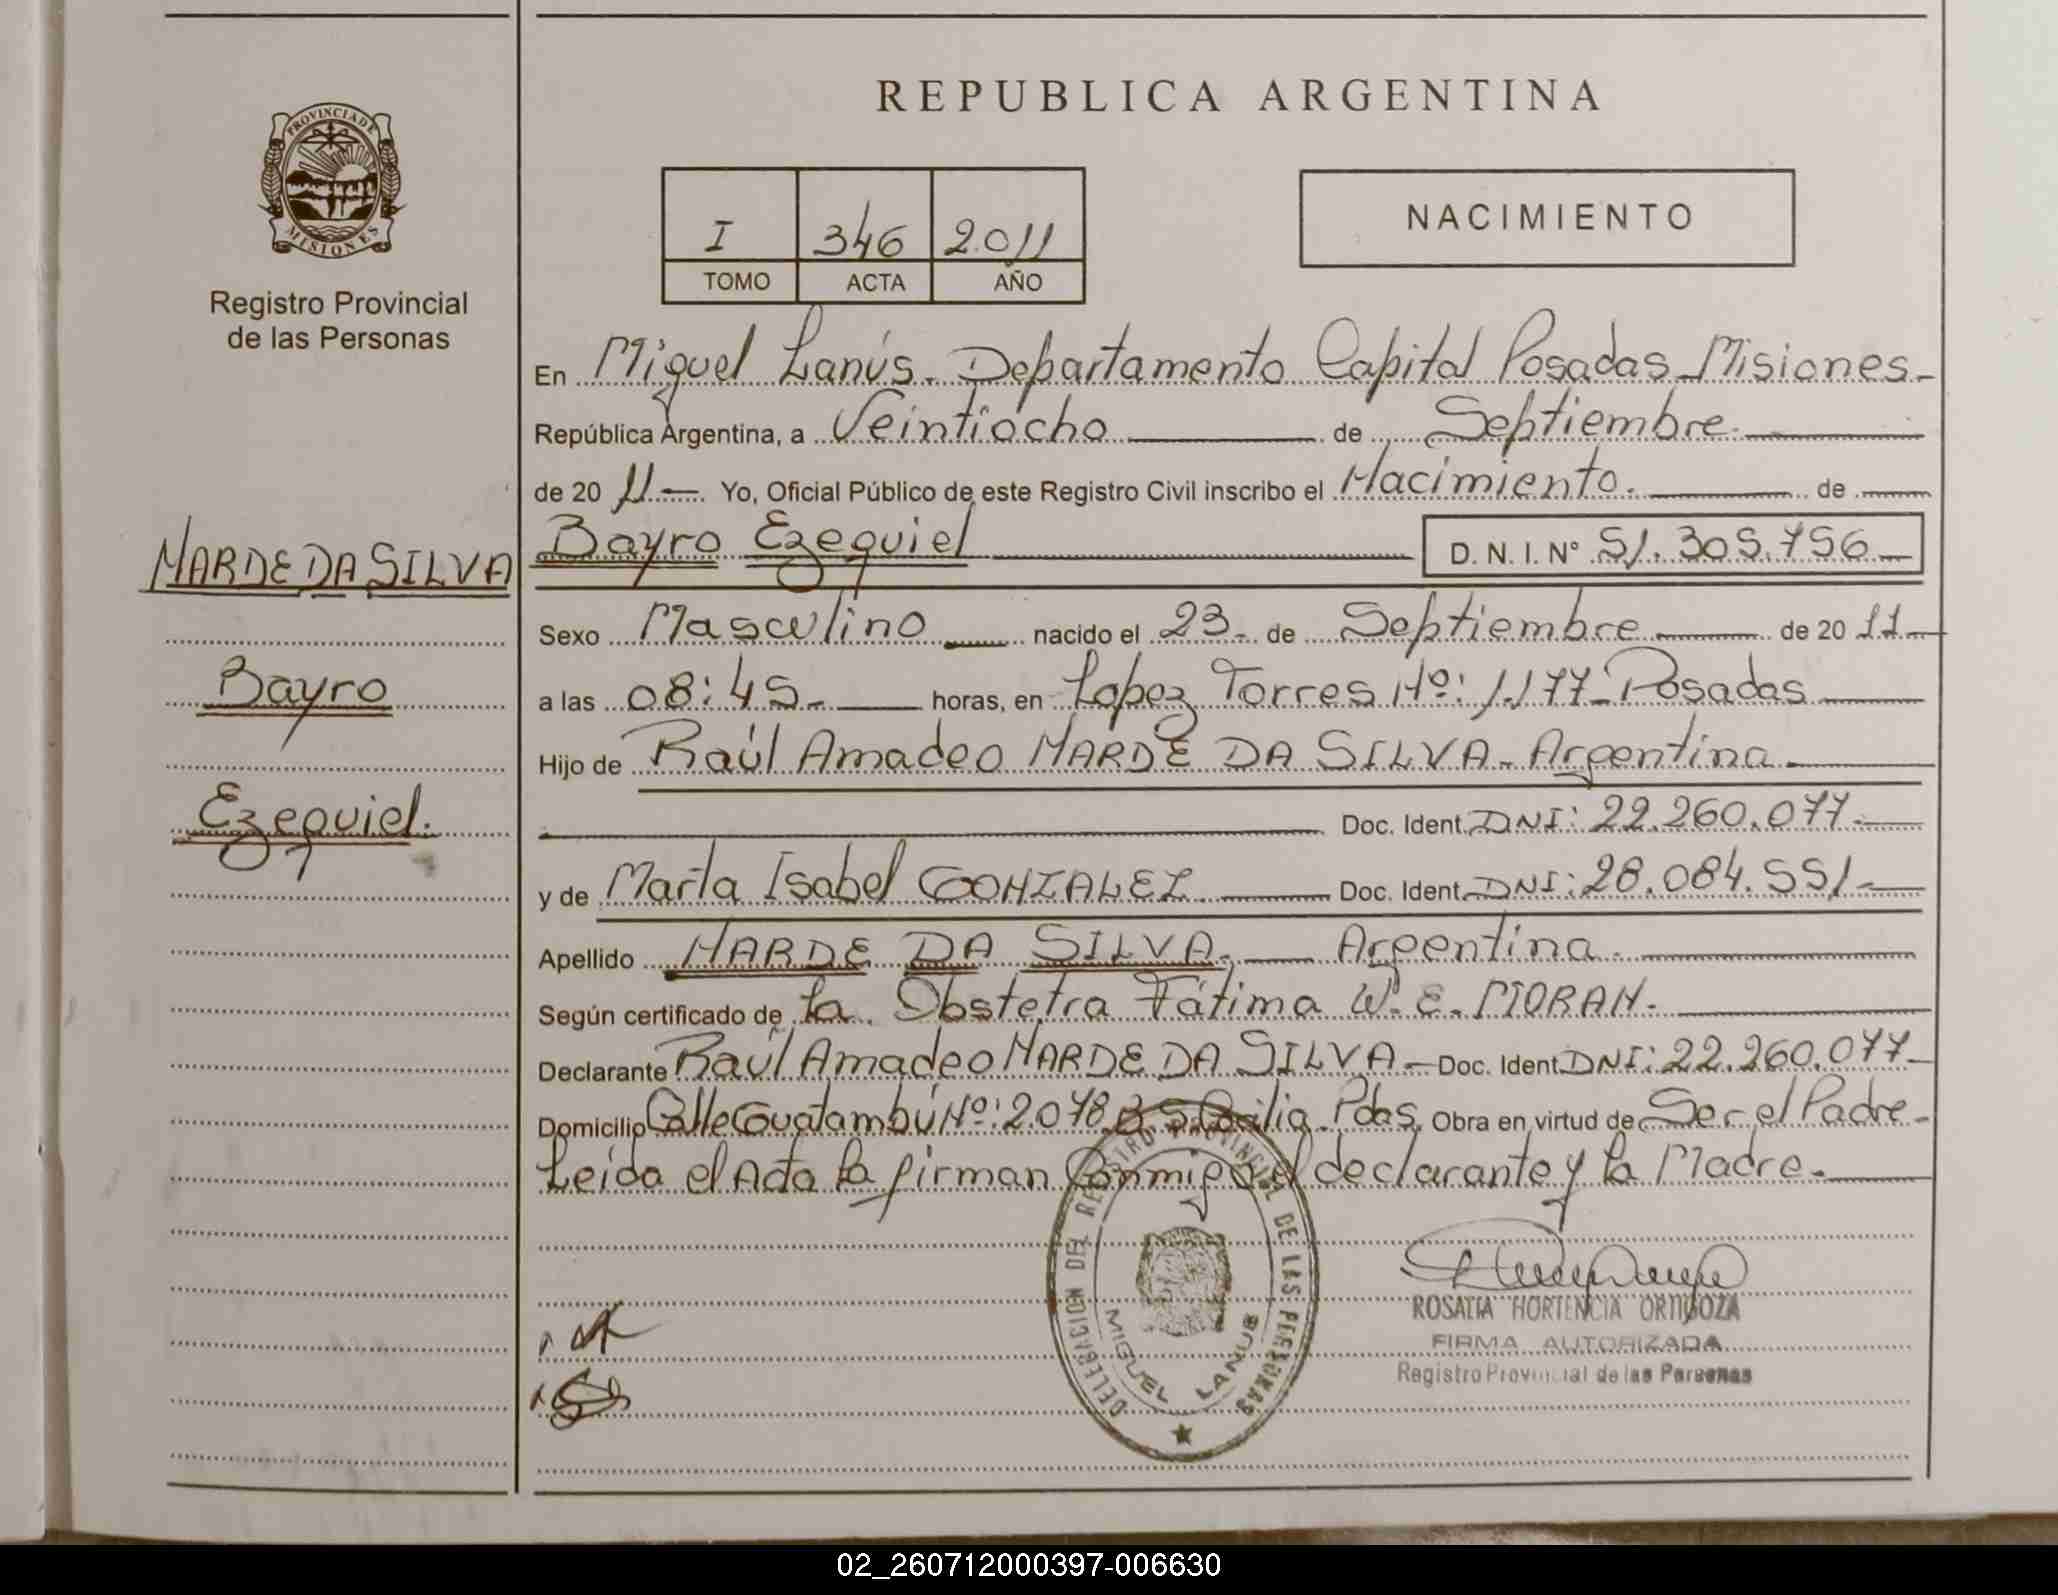 REPUBLICA ARGENTINA
PROVINCIA DE
MISIONES
Registro Provincial
de las Personas
I 346 2.011
TOMO ACTA AÑO
NACIMIENTO
En Miguel Lanús. Departamento Capital Posadas Misiones
República Argentina, a Veintiocho de Septiembre
de 20 11 Yo, Oficial Público de este Registro Civil inscribo el Nacimiento. de
NARDE DA SILVA
Bayro
Ezequiel.
Bayro Ezequiel D. N. I. N° 51.305.756
Sexo Masculino nacido el 23 de Septiembre de 20 11
a las 08:45 horas, en Lopez Torres Nº: 1.177 Posadas
Hijo de Raúl Amadeo NARDE DA SILVA - Argentina
Doc. Ident. DNI: 22.260.077
y de María Isabel GONZALEZ Doc. Ident. DNI: 28.084.551
Apellido NARDE DA SILVA. Argentina.
Según certificado de la Obstetra Fátima W. E. MORAN.
Declarante Raúl Amadeo NARDE DA SILVA - Doc. Ident. DNI: 22.260.077
Domicilio Calle Guatambú Nº: 2.078 B S. Cecilia. Pdas. Obra en virtud de Ser el Padre
Leída el Acta la firman Conmigo el declarante y la Madre.
DELEGACION DEL REGISTRO PROVINCIAL DE LAS PERSONAS
MIGUEL LANUS
ROSALIA HORTENCIA ORTIGOZA
FIRMA AUTORIZADA
Registro Provincial de las Personas
02_260712000397-006630